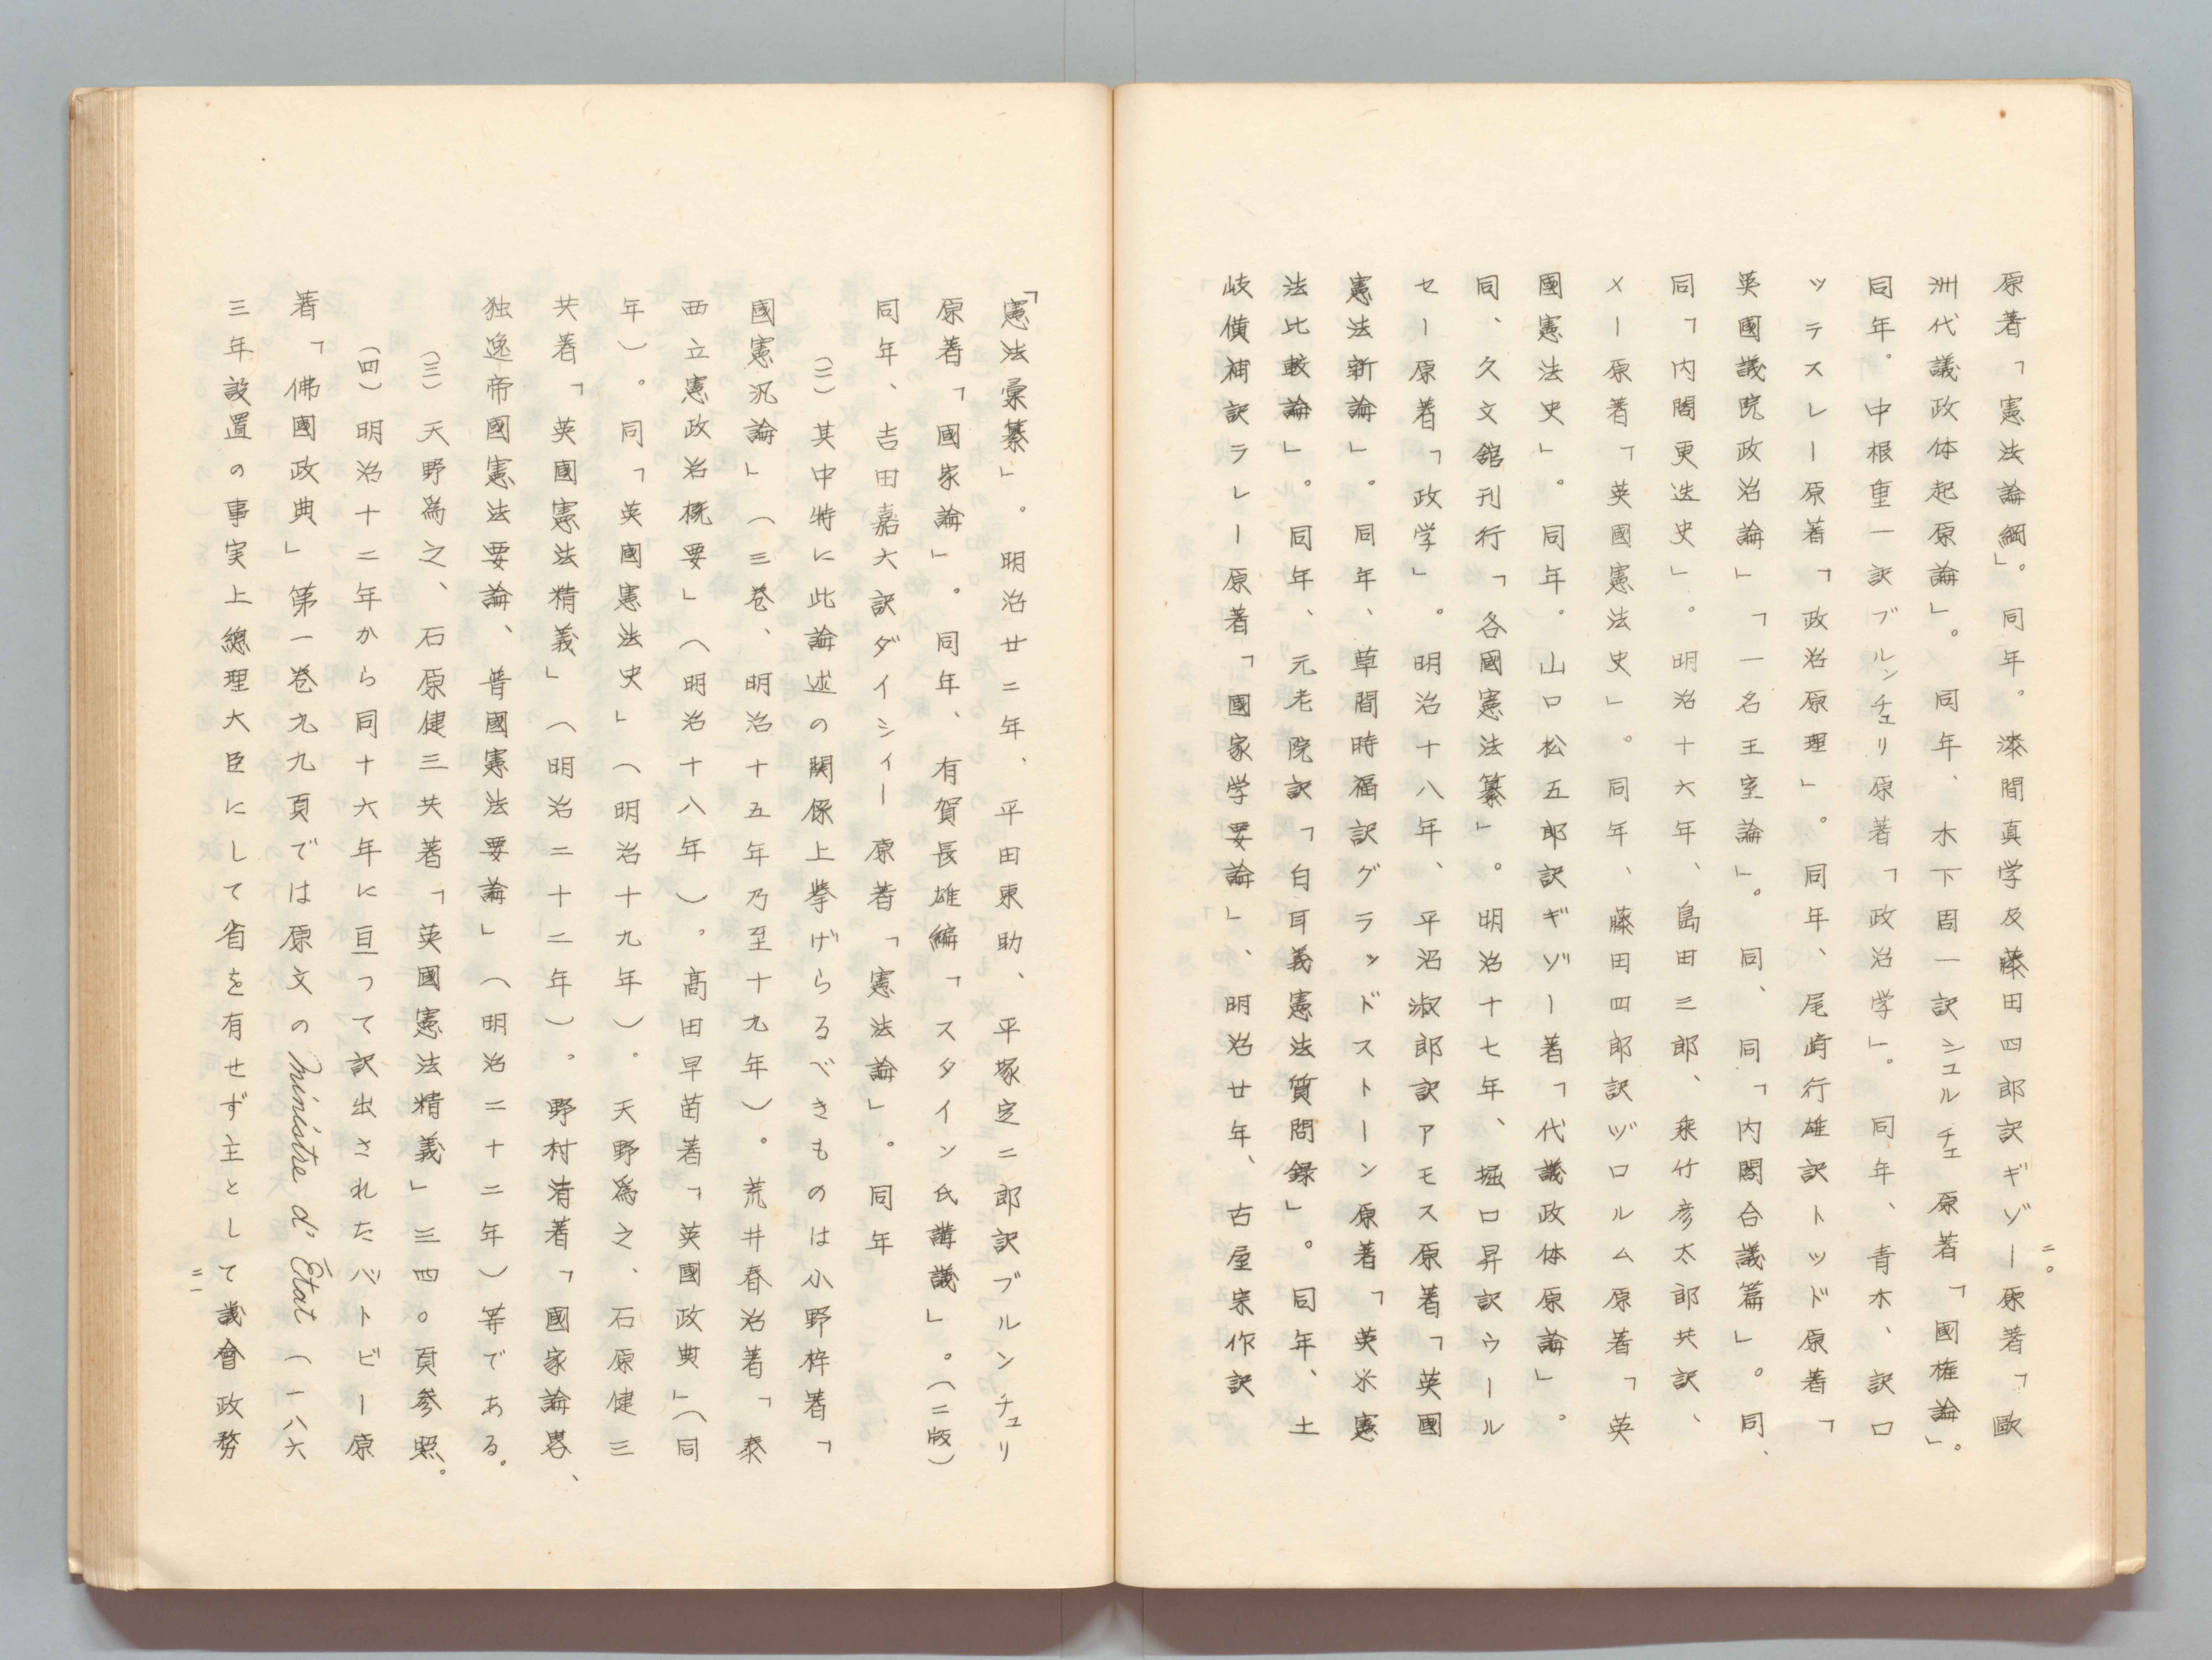 原著「憲法論綱」。同年。漆間真学及藤田四郎訳ギゾー原著「歐
洲代議政体起原論」。同年、木下周一訳シュルチェ原著「國権論」。
同年。中根重一訳ブルンチュリ原著「政治学」。同年、青木、訳ロ
ッラスレー原著「政治原理」。同年、尾崎行雄訳トッド原著「
英國議院政治論」「一名王室論」。同、同「内閣合議篇」。同、
同「内閣更迭史」。明治十六年、島田三郎、乗竹彦太郎共訳、
メー原著「英國憲法史」。同年、藤田四郎訳ヅロルム原著「英
國憲法史」。同年。山口松五郎訳ギゾー著「代議政体原論」。
同、久文舘刊行「各國憲法纂」。明治十七年、堀口昇訳ウール
セー原著「政学」。明治十八年、平沼淑郎訳アモス原著「英國
憲法新論」。同年、草間時福訳グラッドストーン原著「英米憲
法比較論」。同年、元老院訳「白耳義憲法質問録」。同年、土
岐僙補訳ラレー原著「國家学要論」、明治廿年、古屋宗作訳
二〇
「憲法彙纂」。明治廿二年、平田東助、平塚定二郎訳ブルンチュリ
原著「國家論」。同年、有賀長雄編「スタイン氏講議」。（二版）
同年、吉田嘉六訳ダイシィー原著「憲法論」。同年
（二）其中特に此論述の関係上挙げらるべきものは小野梓著「
國憲汎論」（三巻、明治十五年乃至十九年）。荒井春治著「泰
西立憲政治概要」（明治十八年）。高田早苗著「英國政典」（同
年）。同「英國憲法史」（明治十九年）。天野為之、石原健三
共著「英國憲法精義」（明治二十二年）。野村清著「國家論畧、
独逸帝國憲法要論、普國憲法要論」（明治二十二年）等である。
（三）天野為之、石原健三共著「英國憲法精義」三四〇頁参照。
（四）明治十二年から同十六年に亘って訳出されたバトビー原
著「佛國政典」第一巻九九頁では原文の Ministre d'État（一八六
三年設置の事実上總理大臣にして省を有せず主として議會政務
二一